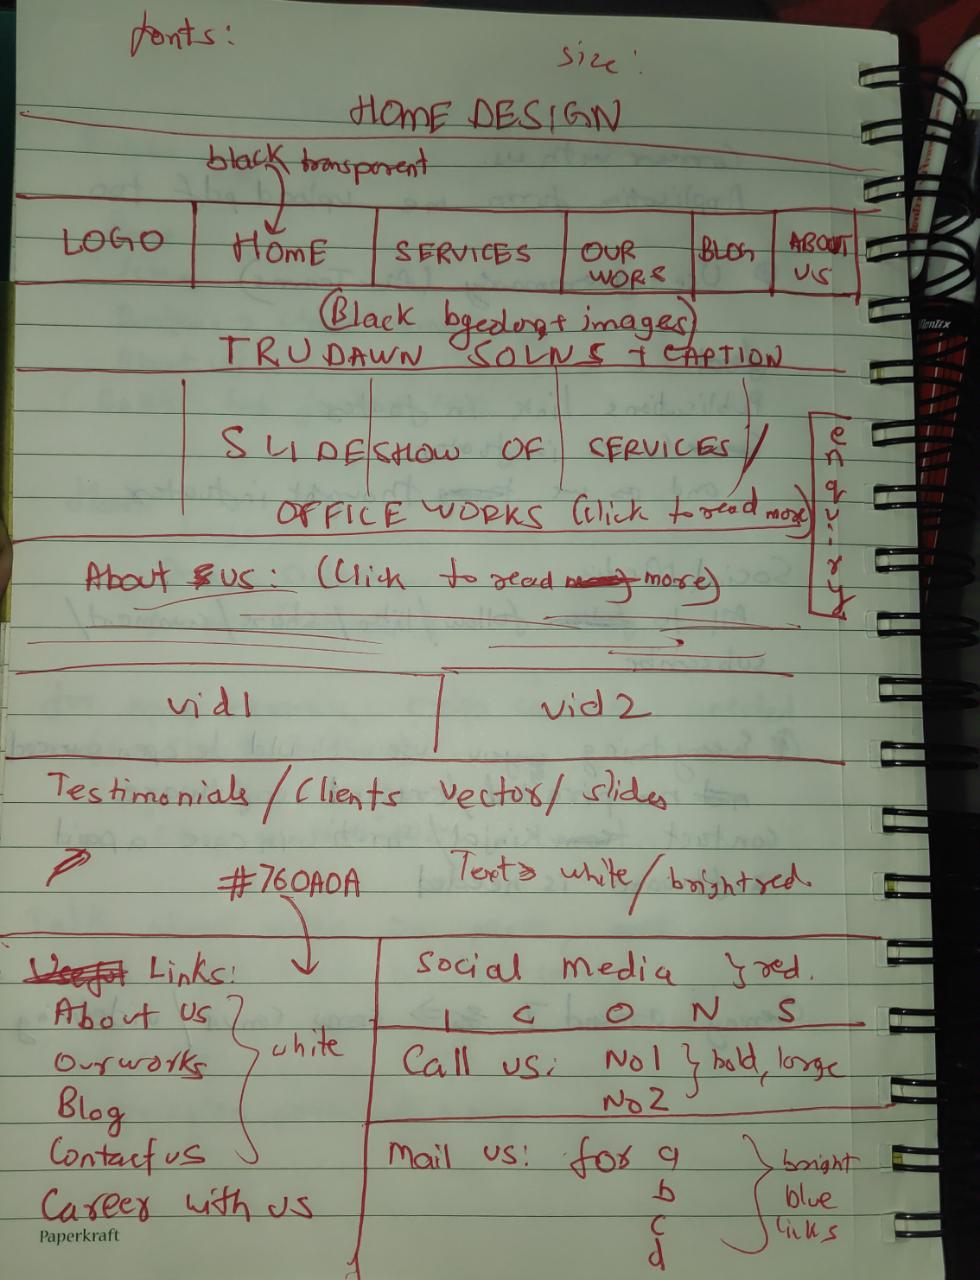 fonts:
size:
HOME DESIGN
black transparent
LOGO HOME SERVICES OUR WORS BLOG ABOUT US
(Black bgcolor + images)
TRUDAWN SOLNS + CAPTION
SLIDESHOW OF SERVICES/
OFFICE WORKS (Click to read more)
enquiry
About us: (Click to read more)
vid1 vid 2
Testimonials / Clients vector / slides
#760A0A
Text white / bright red.
Links:
About us
Our works
Blog
Contact us
white
Career with us
Social media } red.
ICONS
Call us: No1 } bold, large
No2
Mail us: for a
b
c
d
bright
blue
links
Paperkraft